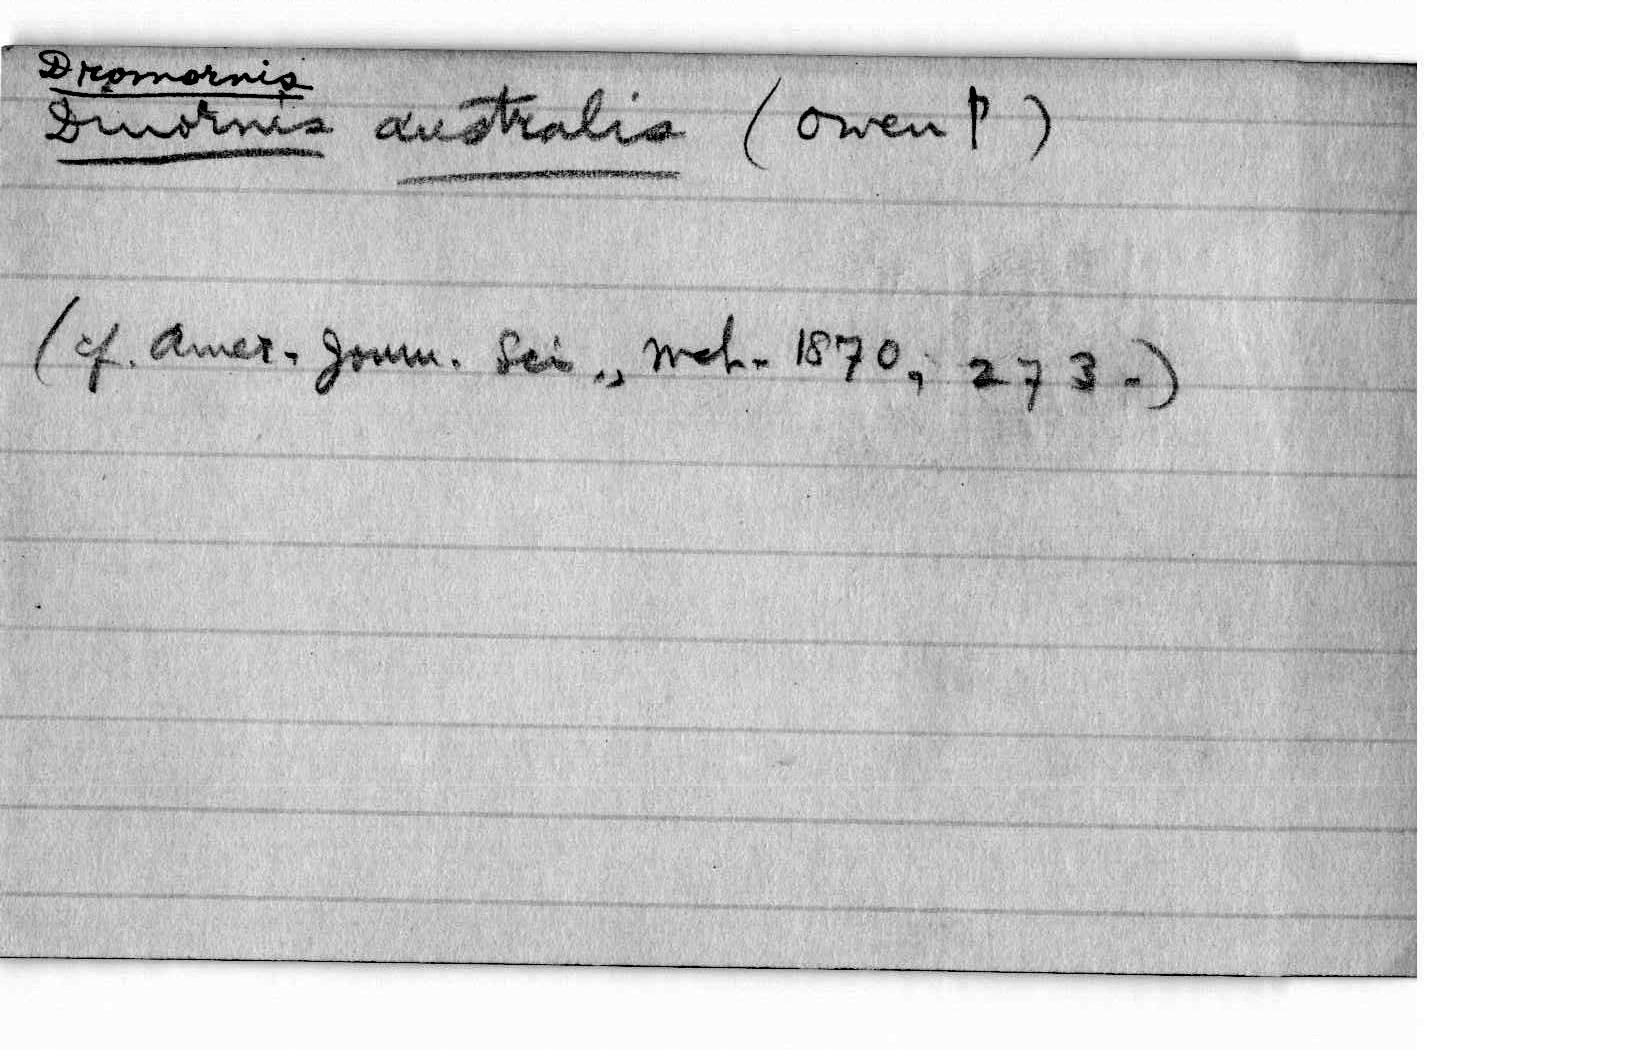 Dromornis
Dinornis australis (Owen ?)
(cf. Amer. Journ. Sci., Mch. 1870, 273-)